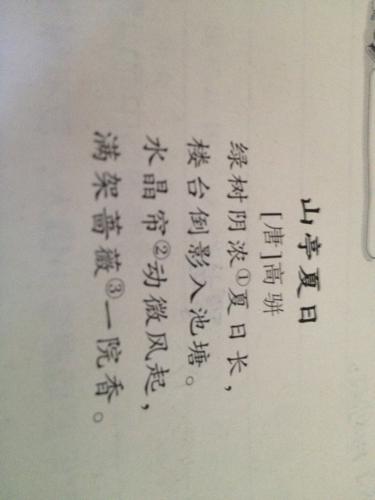 山亭夏日
[唐]高骈
绿树阴浓①夏日长，
楼台倒影入池塘。
水晶帘②动微风起，
满架蔷薇③一院香。